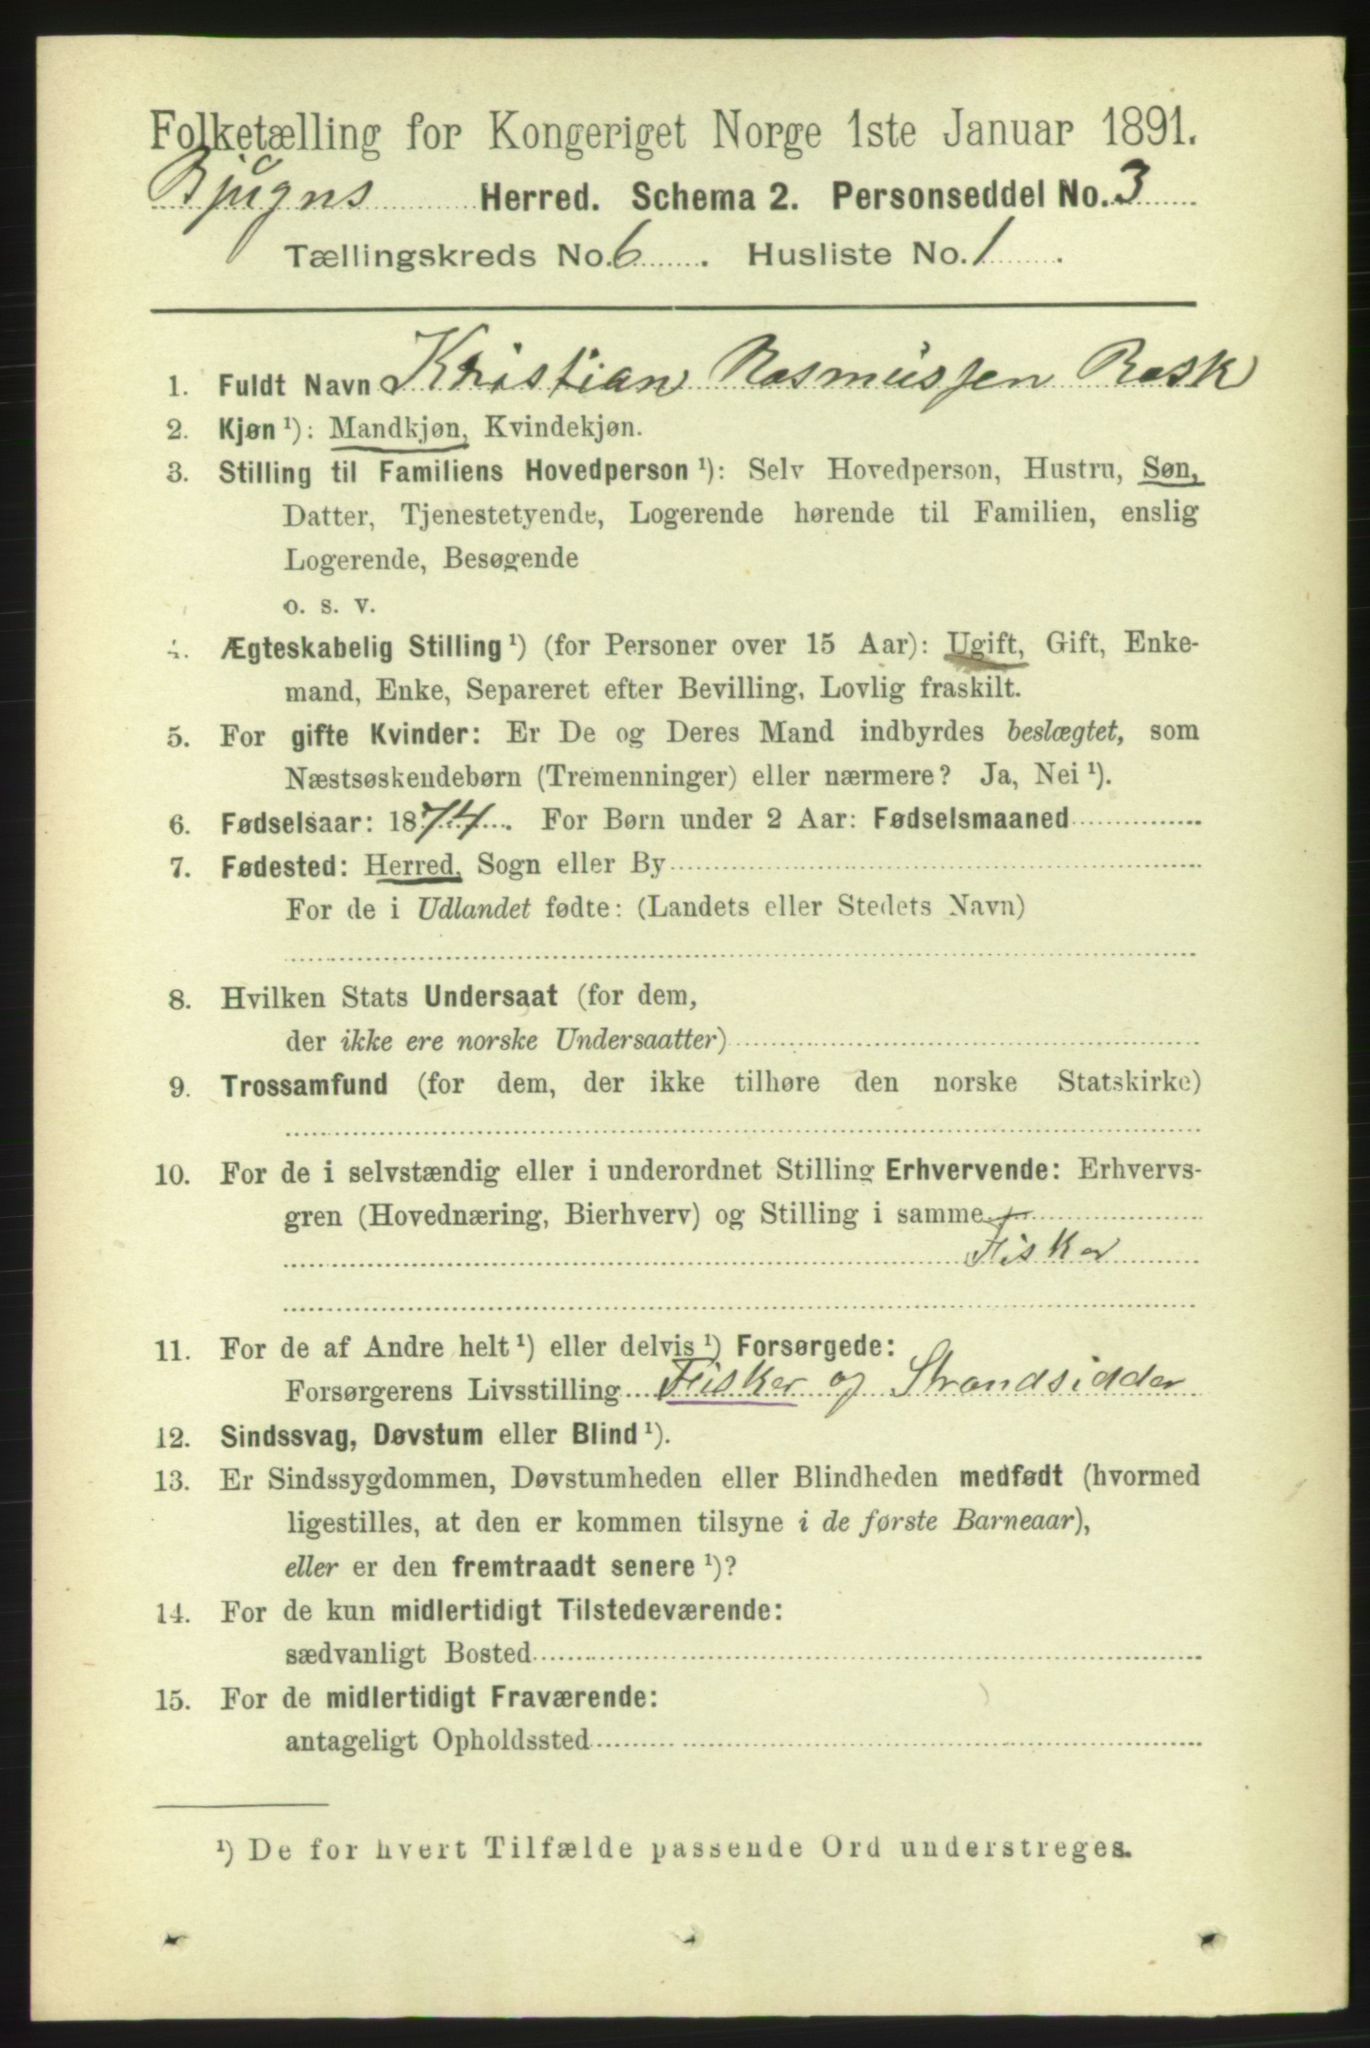 Folketælling for Kongeriget Norge 1ste Januar 1891.
Bjugns Herred. Schema 2. Personseddel No. 3
Tællingskreds No. 6. Husliste No. 1.
1. Fuldt Navn Kristian Rasmussen Rask
2. Kjøn ¹): Mandkjøn, Kvindekjøn.
3. Stilling til Familiens Hovedperson ¹): Selv Hovedperson, Hustru, Søn,
Datter, Tjenestetyende, Logerende hørende til Familien, enslig
Logerende, Besøgende
o. s. v.
4. Ægteskabelig Stilling ¹) (for Personer over 15 Aar): Ugift, Gift, Enke-
mand, Enke, Separeret efter Bevilling, Lovlig fraskilt.
5. For gifte Kvinder: Er De og Deres Mand indbyrdes beslægtet, som
Næstsøskendebørn (Tremenninger) eller nærmere? Ja, Nei ¹).
6. Fødselsaar: 1874. For Børn under 2 Aar: Fødselsmaaned
7. Fødested: Herred, Sogn eller By
For de i Udlandet fødte: (Landets eller Stedets Navn)
8. Hvilken Stats Undersaat (for dem,
der ikke ere norske Undersaatter)
9. Trossamfund (for dem, der ikke tilhøre den norske Statskirke)
10. For de i selvstændig eller i underordnet Stilling Erhvervende: Erhvervs-
gren (Hovednæring, Bierhverv) og Stilling i samme
Fisker
11. For de af Andre helt ¹) eller delvis ¹) Forsørgede:
Forsørgerens Livsstilling Fisker og Strandsidder
12. Sindssvag, Døvstum eller Blind ¹).
13. Er Sindssygdommen, Døvstumheden eller Blindheden medfødt (hvormed
ligestilles, at den er kommen tilsyne i de første Barneaar),
eller er den fremtraadt senere ¹)?
14. For de kun midlertidigt Tilstedeværende:
sædvanligt Bosted
15. For de midlertidigt Fraværende:
antageligt Opholdssted
¹) De for hvert Tilfælde passende Ord understreges.